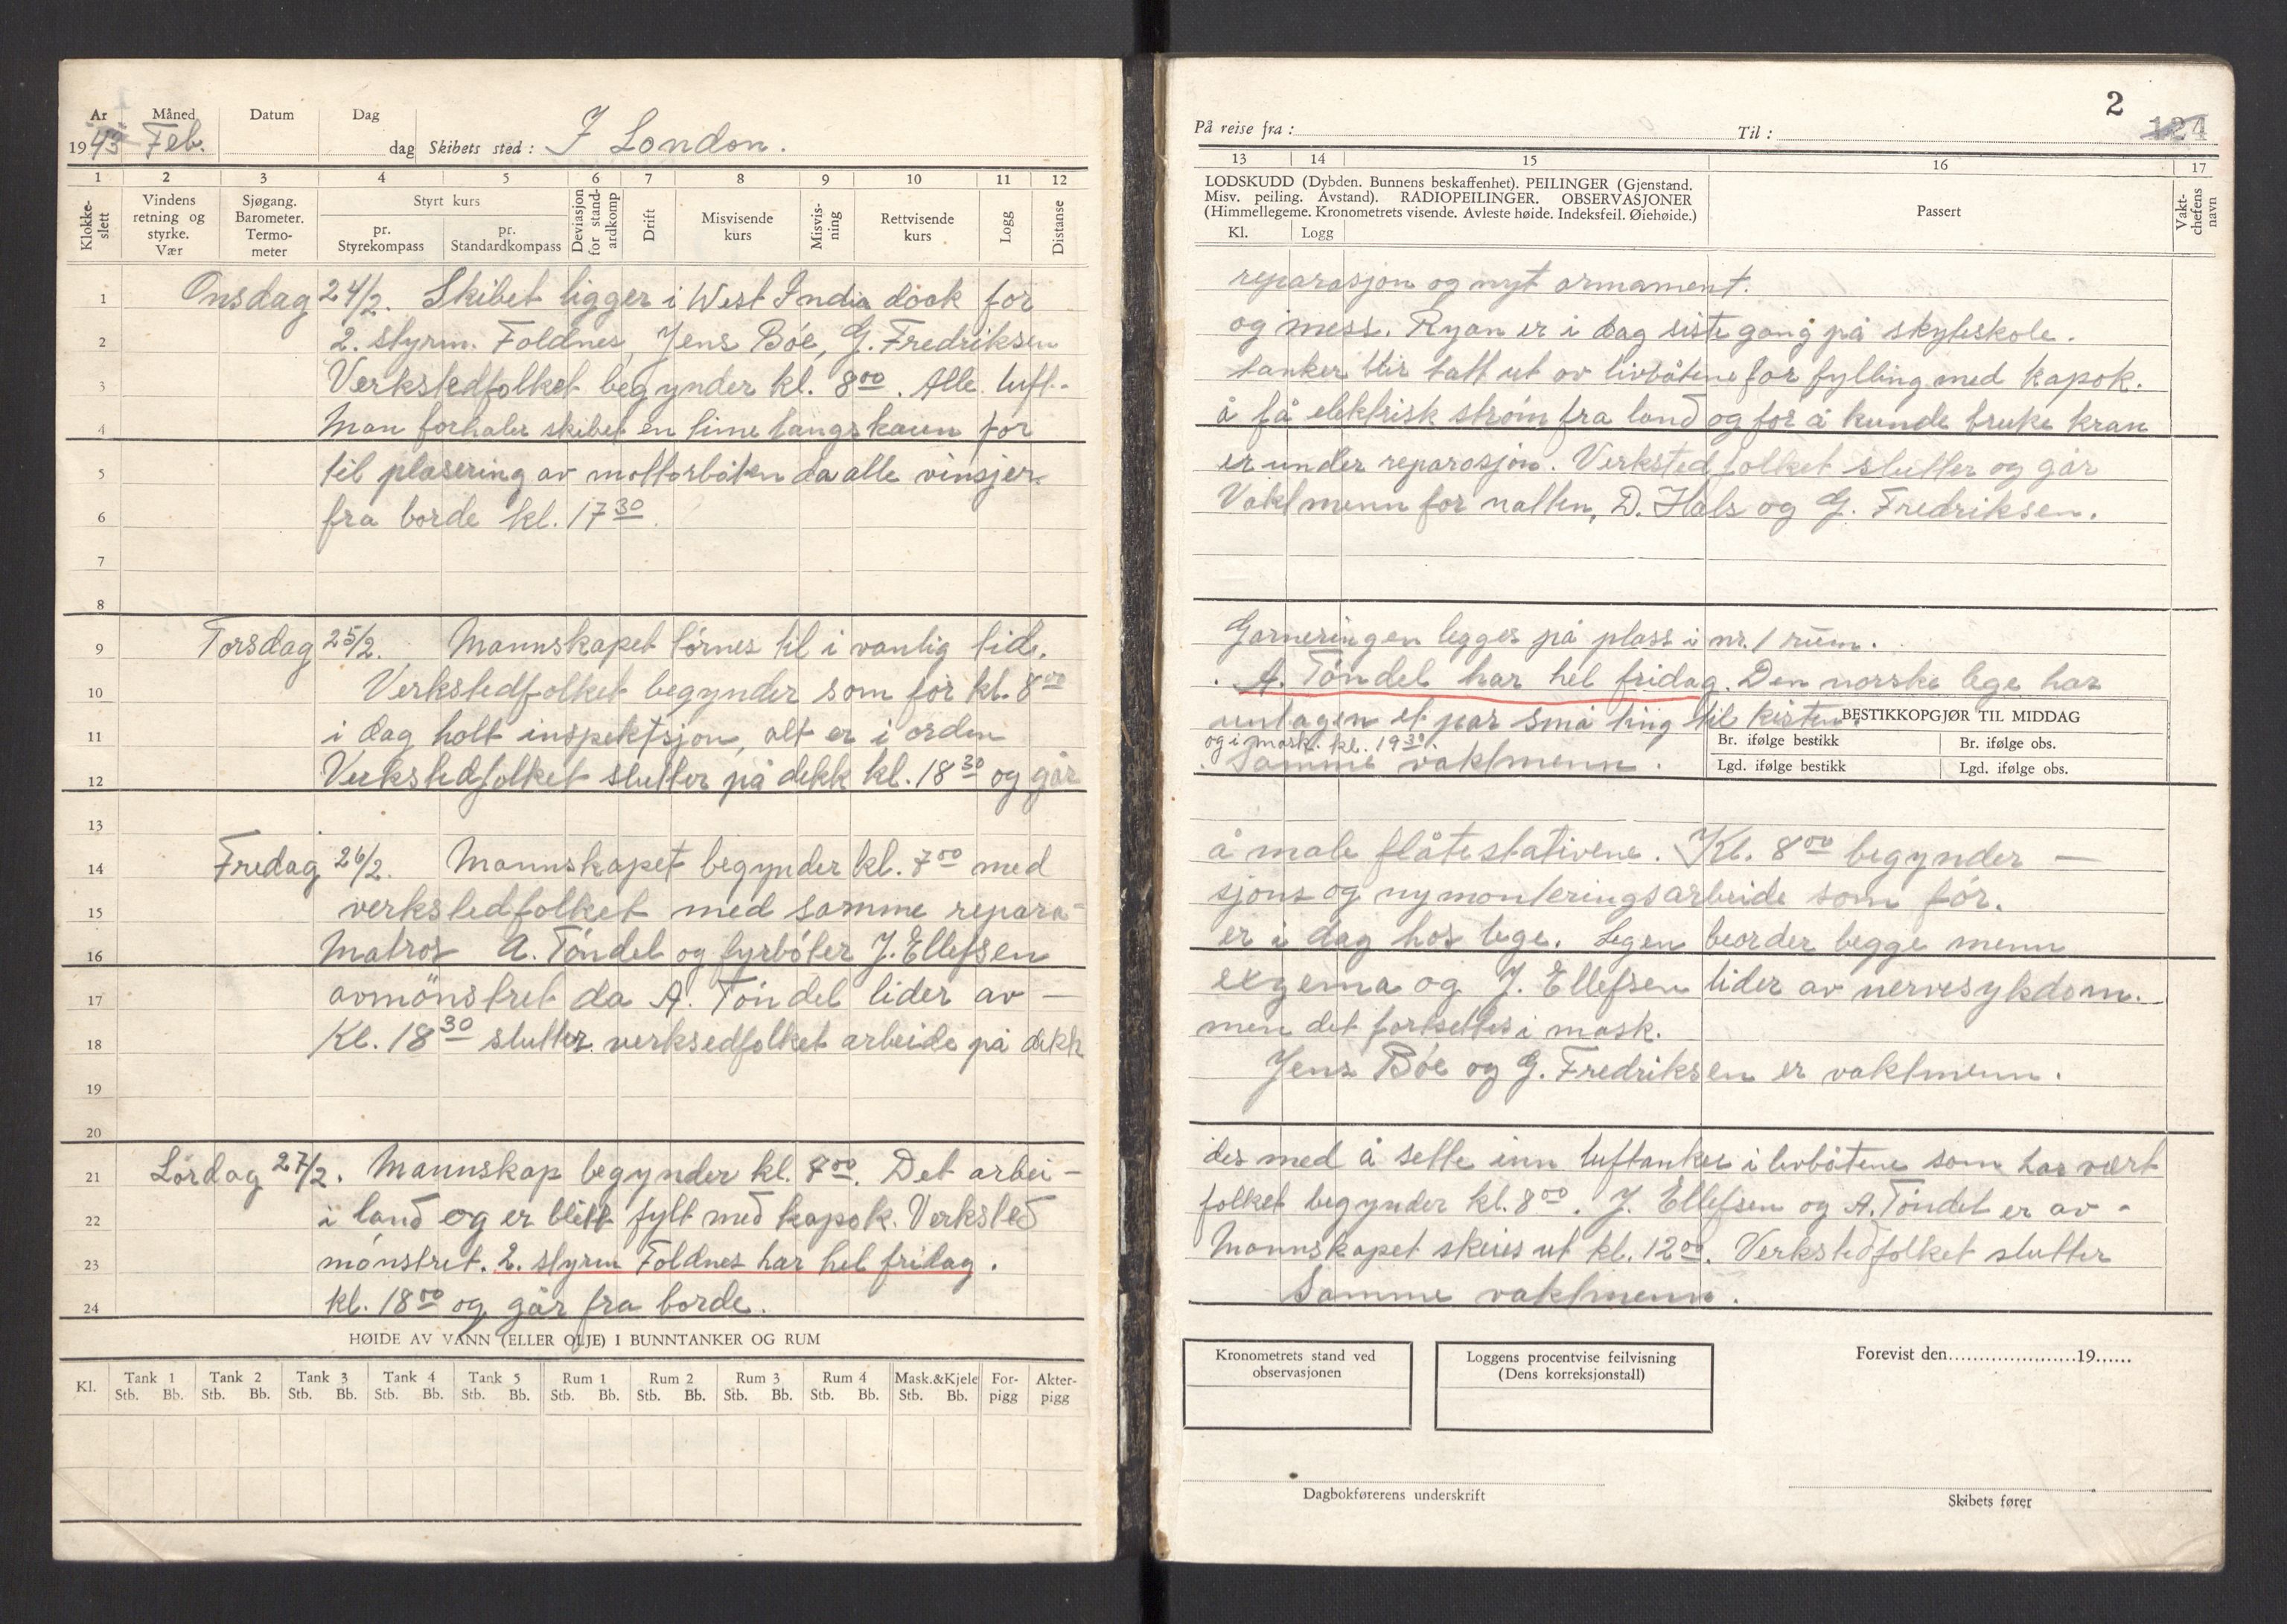 År
Måned
Datum
Dag
1943 Feb. dag Skibets sted: I London.
1 2 3 4 5 6 7 8 9 10 11 12
Klokke-slett
Vindens retning og styrke. Vær
Sjøgang. Barometer. Termo-meter
Styrt kurs
pr. Styrekompass
pr. Standardkompass
Deviasjon for stand-ardkomp
Drift
Misvisende kurs
Misvis-ning
Rettvisende kurs
Logg
Distanse
1 Onsdag 24/2. Skibet ligger i West India dock for
2 2. styrm. Foldnes, Jens Böe, G. Fredriksen
3 Verkstedfolket begynder kl. 8 00. Alle luft-
4 Man forhaler skibet en time langs kaien for
5 til plasering av mottorbåten da alle vinsjer
6 fra borde kl. 17 30.
7
8
9 Torsdag 25/2. Mannskapet törnes til i vanlig tid.
10 Verkstedfolket begynder som för kl. 8 00
11 i dag holt inspektsjon, alt er i orden
12 Verkstedfolket slutter på dekk kl. 18 30 og går
13
14 Fredag 26/2. Mannskapet begynder kl. 7 00 med
15 verkstedfolket med samme repara-
16 Matros A. Töndel og fyrböter J. Ellefsen
17 avmönstret da A. Töndel lider av —
18 Kl. 18 30 slutter verksedfolket arbeide på dekk
19
20
21 Lördag 27/2. Mannskap begynder kl. 7 00. Det arbei-
22 i land og er blitt fylt med kapok. Verksted
23 mönstret. 2. styrm Foldnes har hel fridag.
24 kl. 18 00 og går fra borde.
HØIDE AV VANN (ELLER OLJE) I BUNNTANKER OG RUM
Kl. Tank 1 Tank 2 Tank 3 Tank 4 Tank 5 Rum 1 Rum 2 Rum 3 Rum 4 Mask.&Kjele For-pigg Akter-pigg
Stb. Bb. Stb. Bb. Stb. Bb. Stb. Bb. Stb. Bb. Stb. Bb. Stb. Bb. Stb. Bb. Stb. Bb. Stb. Bb.
2
124
På reise fra: Til:
13 14 15 16 17
LODSKUDD (Dybden. Bunnens beskaffenhet). PEILINGER (Gjenstand.
Misv. peiling. Avstand). RADIOPEILINGER. OBSERVASJONER
(Himmellegeme. Kronometrets visende. Avleste høide. Indeksfeil. Øiehøide.)
Kl. Logg
Passert
Vakt-chefens navn
reparasjon og nyt armament.
og mess. Ryan er i dag siste gang på skyteskole.
tanker blir tatt ut av livbåtene for fylling med kapok.
å få elektrisk ström fra land og for å kunde bruke kran
er under reparasjon. Verkstedfolket slutter og går
Vaktmenn for natten, D. Hals og G. Fredriksen.
Garneringen legges på plass i nr. 1 rum.
A. Töndel har hel fridag. Den norske lege har
untagen et par små ting til kisten.
BESTIKKOPGJØR TIL MIDDAG
Br. ifølge bestikk Br. ifølge obs.
Lgd. ifølge bestikk Lgd. ifølge obs.
og i mask. kl. 19 30.
Samme vaktmenn.
å male flåtestativene. Kl. 8 00 begynder —
sjons og nymonteringsarbeide som för.
er i dag hos lege. Legen beorder begge menn
exzema og J. Ellefsen lider av nervesykdom.
men det fortsettes i mask.
Jens Böe og G. Fredriksen er vaktmenn.
des med å sette inn luftanker i livbåtene som har vært
folket begynder kl. 8 00. J. Ellefsen og A. Töndel er av-
Mannskapet skeies ut kl. 12 00. Verkstedfolket slutter
Samme vaktmenn.
Kronometrets stand ved observasjonen
Loggens procentvise feilvisning
(Dens korreksjonstall)
Forevist den 19
Dagbokførerens underskrift
Skibets fører